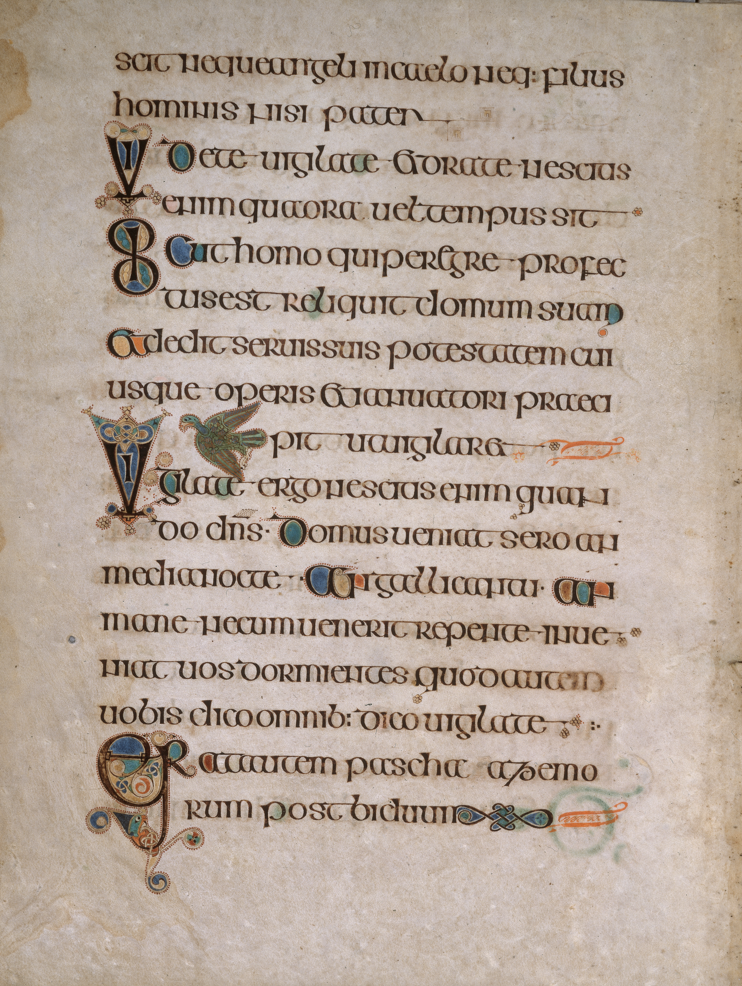 scit neque angeli in caelo neq: filius
hominis nisi pater
Videte uigilate & orate nescitis
enim quaora uel tempus sit
Sicut homo qui peregre profec
tus est reliquit domum suam
& dedit seruis suis potestatem cui
usque operis & ianuatori praeci
pit ut uigilar&
Vigilate ergo nescitis enim quan
do dn̄s· domus ueniat sero an
media nocte · an galli cantu · an
mane ne cum uenerit repente inue
niat uos dormientes quod autem
uobis dico omnib: dico uigilate
Erat autem pascha azemo
rum post biduum